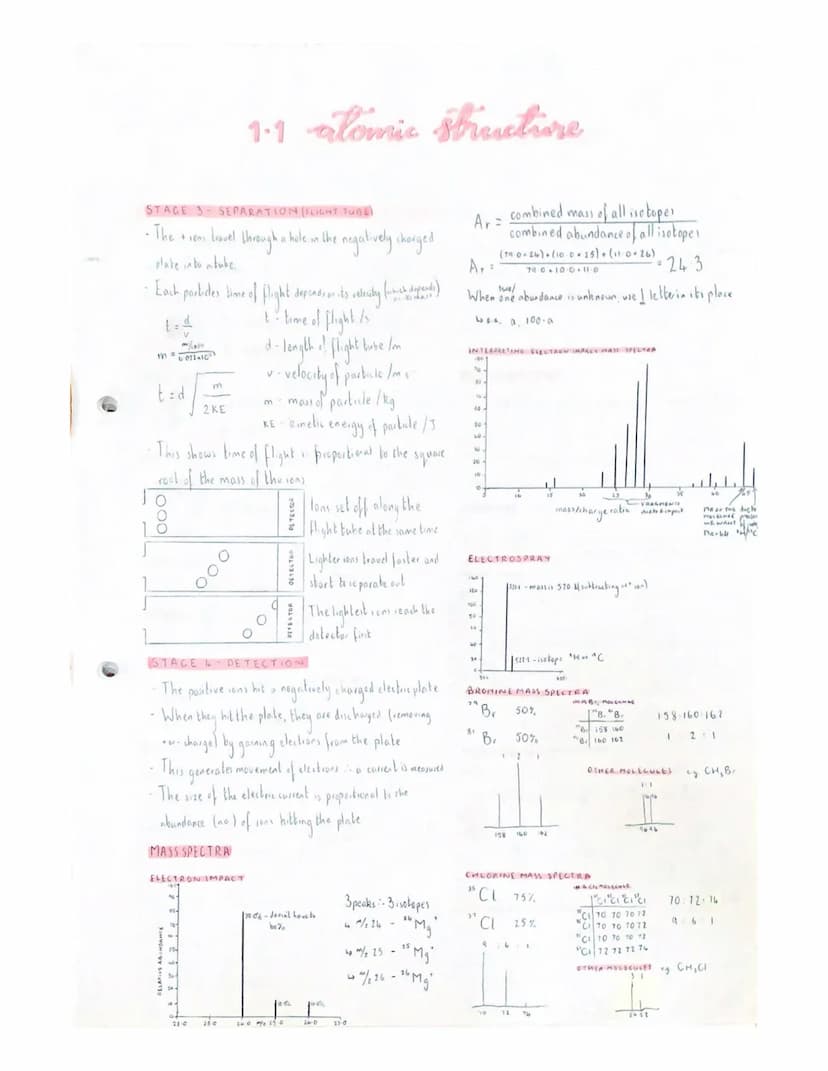 1.1 atomic structure
STAGE 3 - SEPARATION (FLIGHT TUBE)
· The + ions travel through a hole in the negatively charged
plate into a tube.
· Each particles time of flight depends on its velocity (which depends
on its mass)
t = d/v
t - time of flight /s
d - length of flight tube /m
v - velocity of particle /m s
t = d √(m/2KE)
m - mass of particle /kg
KE - kinetic energy of particle /J
· This shows time of flight is proportional to the square
root of the mass of the ions
DETECTOR
Ions set off along the
flight tube at the same time
DETECTOR
Lighter ions travel faster and
start to separate out
DETECTOR
The lightest ions reach the
detector first
STAGE 4 - DETECTION
· The positive ions hit a negatively charged electric plate
· When they hit the plate, they are discharged (removing
charge) by gaining electrons from the plate
· This generates movement of electrons ∴ a current is measured
· The size of the electric current is proportional to the
abundance (no.) of ions hitting the plate
MASS SPECTRA
ELECTRON IMPACT
RELATIVE ABUNDANCE
3 peaks ∴ 3 isotopes
↳ m/z 24 - ²⁴Mg⁺
↳ m/z 25 - ²⁵Mg⁺
↳ m/z 26 - ²⁶Mg⁺
24.0 m/z 25.0 26.0
Ar = combined mass of all isotopes
combined abundance of all isotopes
Ar = = 24.3
When one abundance is unknown, use 1 letter in its place
a, 100-a
INTERPRETING ELECTRON IMPACT MASS SPECTRA
mass/charge ratio
FRAGMENTS
ELECTROSPRAY
BROMINE MASS SPECTRA
⁷⁹Br 50%
⁸¹Br 50%
158 160
160 162
158:160:162
1 2 : 1
1 : 2 : 1
158 160 162
OTHER MOLECULES eg CH₃Br
1:1
CHLORINE MASS SPECTRA
³⁵Cl 75%
³⁷Cl 25%
70 70 70 72
70 70 70 72
70 70 70 72
72 72 72 74
70:72:74
9 : 6 : 1
9 : 6 : 1
70 72 74
OTHER MOLECULES eg CH₃Cl
3 1